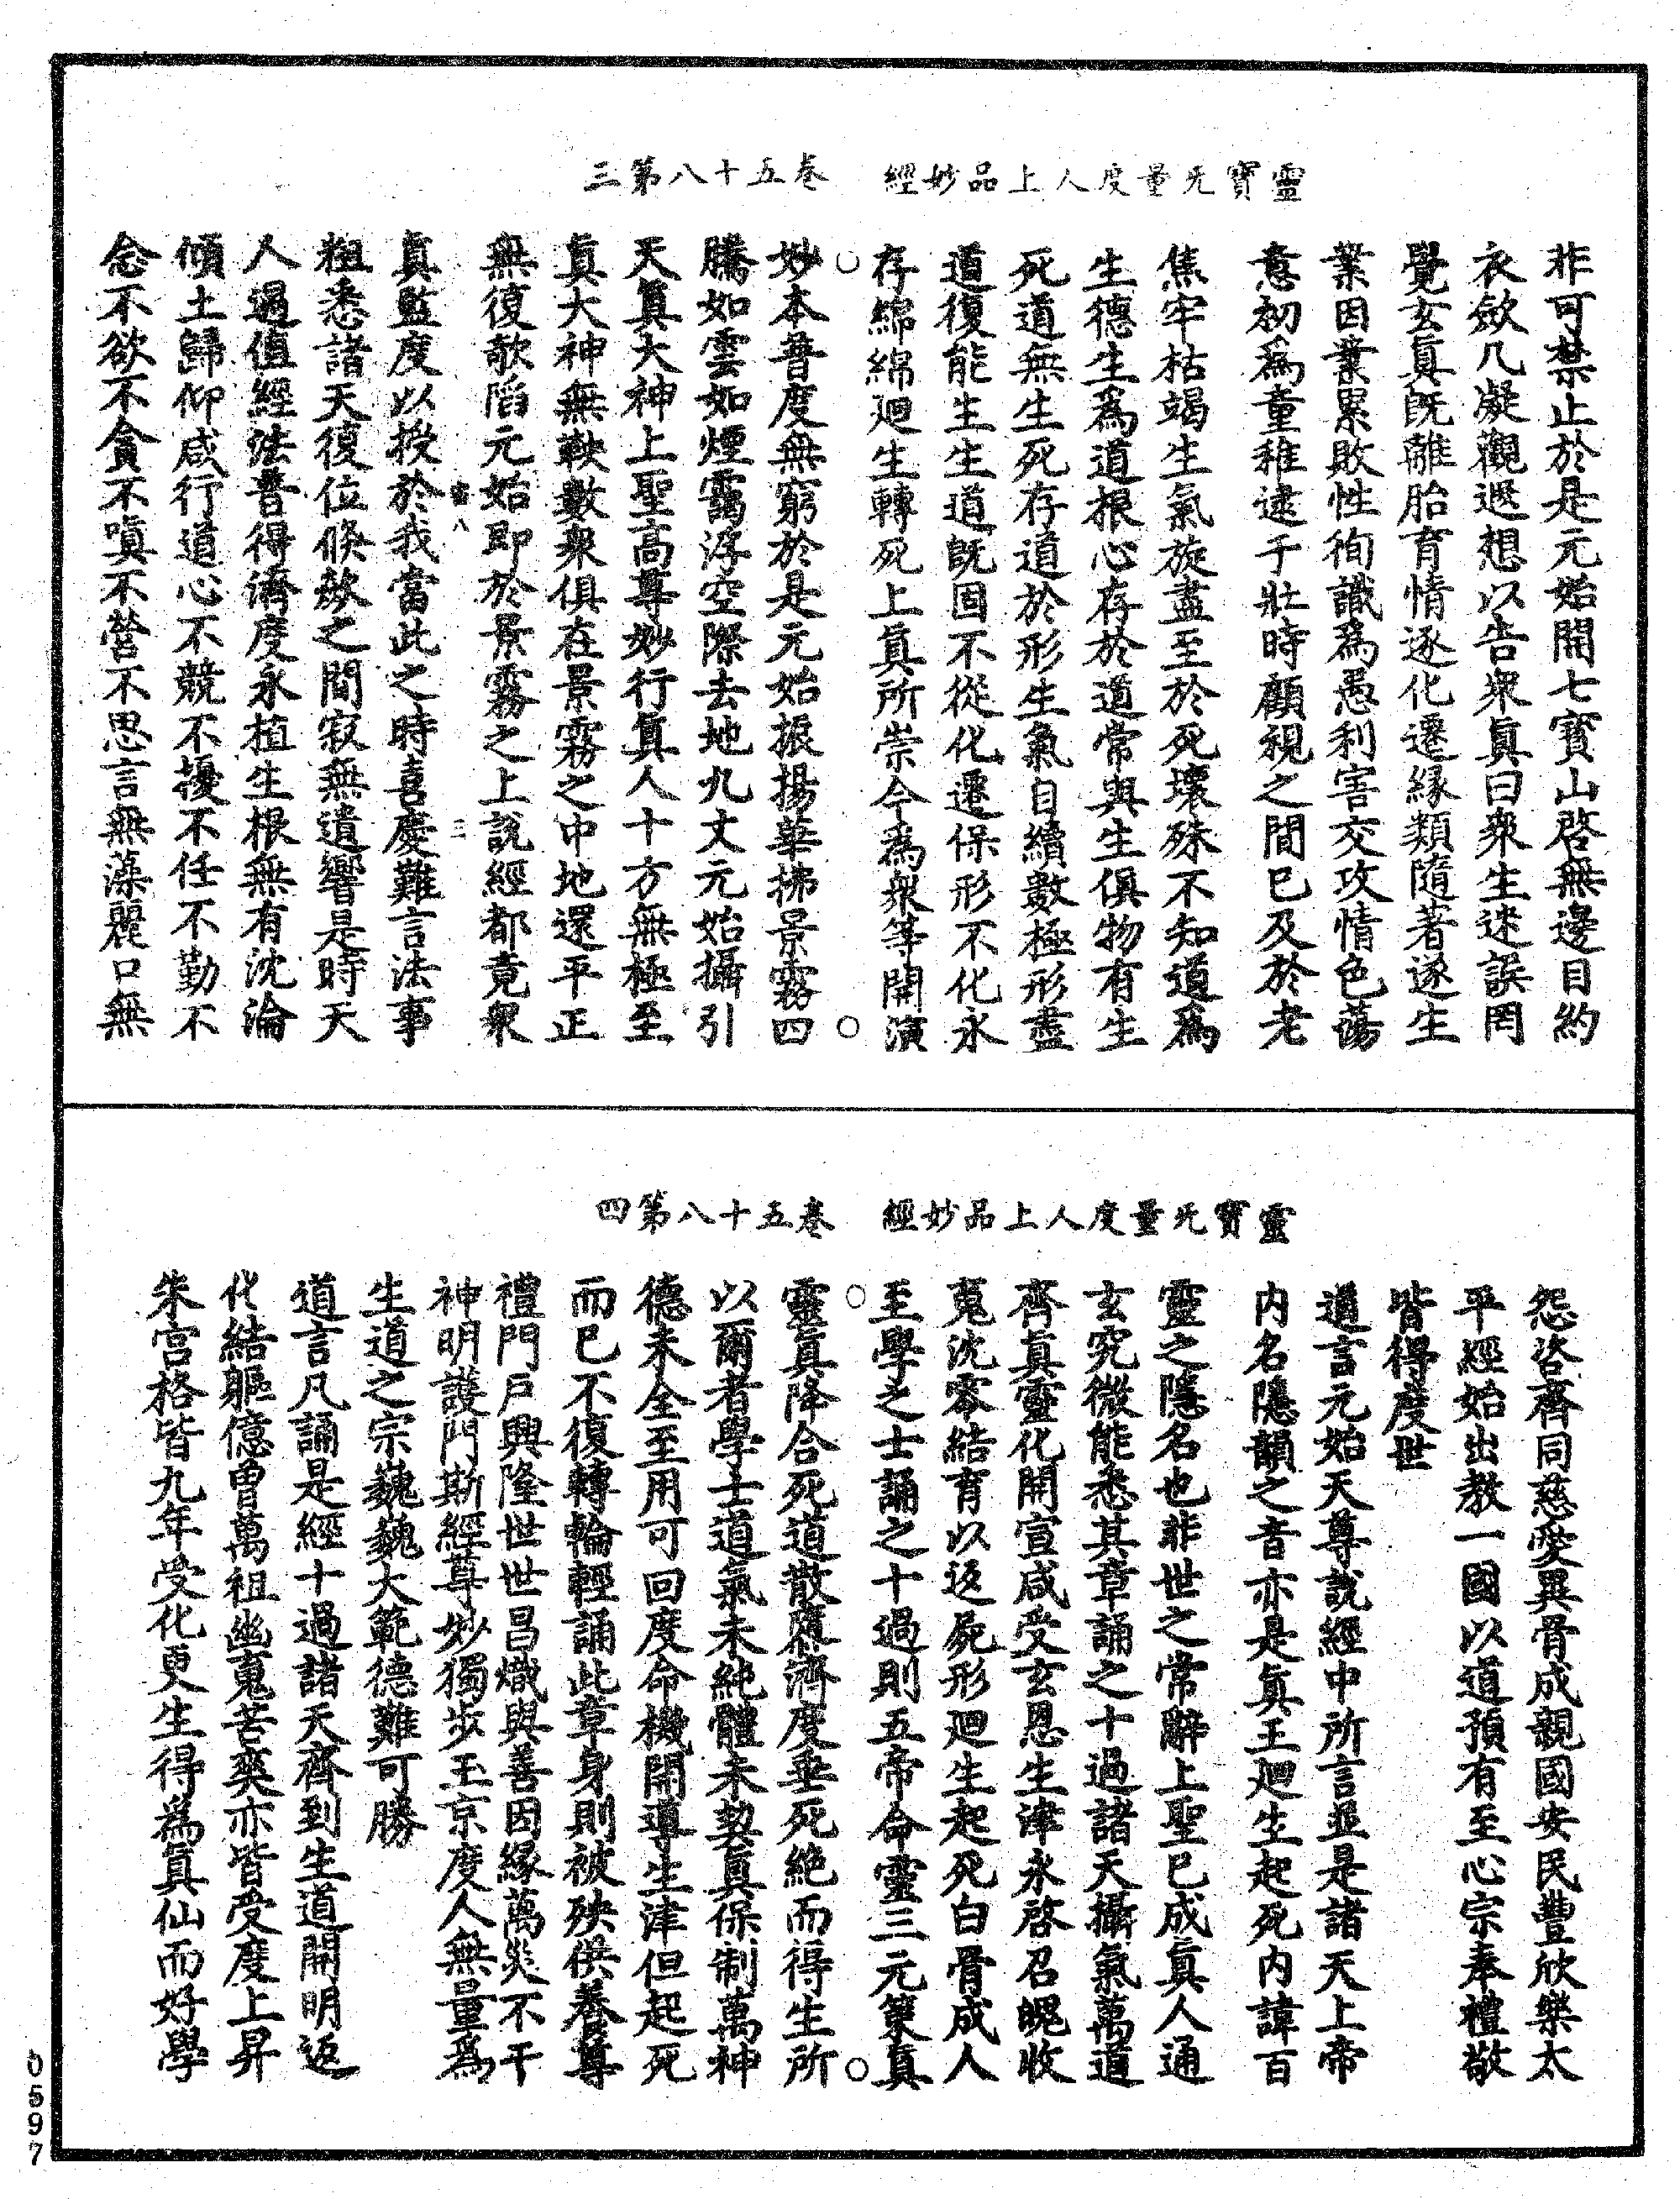 靈寶无量度人上品妙經　卷五十八第三
非可禁止於是元始開七寶山啓無邊目約
衣斂几凝觀遐想以告衆眞曰衆生迷誤罔
覺玄眞旣離胎育情逐化遷緣類隨著遂生
業因業累敗性徇識爲愚利害交攻情色蕩
意初爲童稚逮于壯時顧視之間已及於老
焦牢枯竭生氣旋盡至於死壞殊不知道爲
生德生爲道根心存於道常與生俱物有生
死道無生死存道於形生氣自續數極形盡
道復能生生道旣固不從化遷保形不化永
存綿綿廻生轉死上眞所崇今爲衆等開演
妙本普度無窮於是元始振揚華拂景霧四
騰如雲如煙靄浮空際去地九丈元始攝引
天眞大神上聖高尊妙行眞人十方無極至
眞大神無鞅數衆俱在景霧之中地還平正
無復欹陷元始即於景霧之上說經都竟衆
八　三
眞監度以授於我當此之時喜慶難言法事
粗悉諸天復位倏欻之間寂無遺響是時天
人遇値經法普得濟度永植生根無有沈淪
傾土歸仰咸行道心不競不擾不任不勤不
念不欲不貪不嗔不營不思言無藻麗口無
靈寶无量度人上品妙經　卷五十八第四
怨咨齊同慈愛異骨成親國安民豐欣樂太
平經始出教一國以道預有至心宗奉禮敬
皆得度世
道言元始天尊說經中所言並是諸天上帝
内名隱韻之音亦是眞王廻生起死内諱百
靈之隱名也非世之常辭上聖已成眞人通
玄究微能悉其章誦之十過諸天攝氣萬道
齊眞靈化開宣咸受玄恩生津永啓召魄收
䰟沈零結育以返屍形廻生起死白骨成人
至學之士誦之十過則五帝命靈三元策眞
靈眞降合死道散隳濟度垂死絕而得生所
以爾者學士道氣未純體未契眞保制萬神
德未全至用可回度命機開導生津但起死
而已不復轉輪輕誦此章身則被殃供養尊
禮門戶興隆世世昌熾與善因緣萬災不干
神明護門斯經尊妙獨步玉京度人無量爲
生道之宗巍巍大範德難可勝
道言凡誦是經十過諸天齊到生道開明返
化結軀億曾萬祖幽䰟苦爽亦皆受度上昇
朱宮格皆九年受化更生得爲眞仙而好學
0597